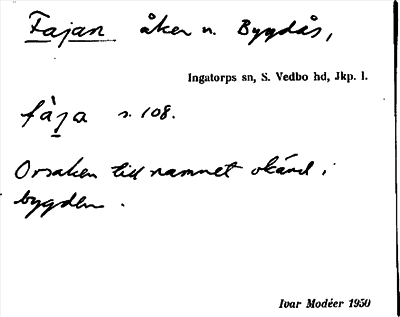 Fajan åker n. Bygdås,
Ingatorps sn, S. Vedbo hd, Jkp. l.
fàȷa s. 108.
Orsaken till namnet okänd i
bygden.
Ivar Modéer 1950